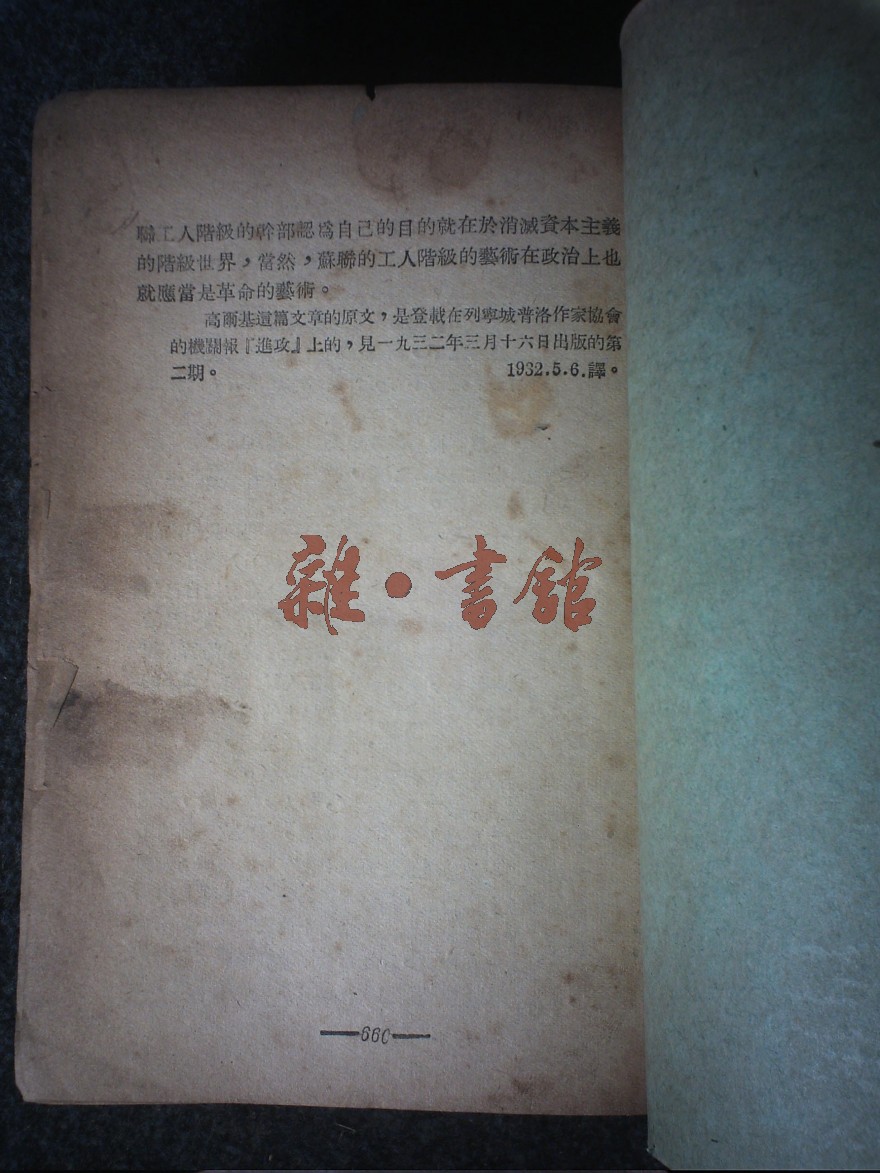 聯工人階級的幹部認爲自己的目的就在於消滅資本主義
的階級世界,當然,蘇聯的工人階級的藝術在政治上也
就應當是革命的藝術。
高爾基這篇文章的原文,是登載在列寧城普洛作家協會
的機關報『進攻』上的,見一九三二年三月十六日出版的第
二期。 1932.5.6.譯。
雜·書館
—660—